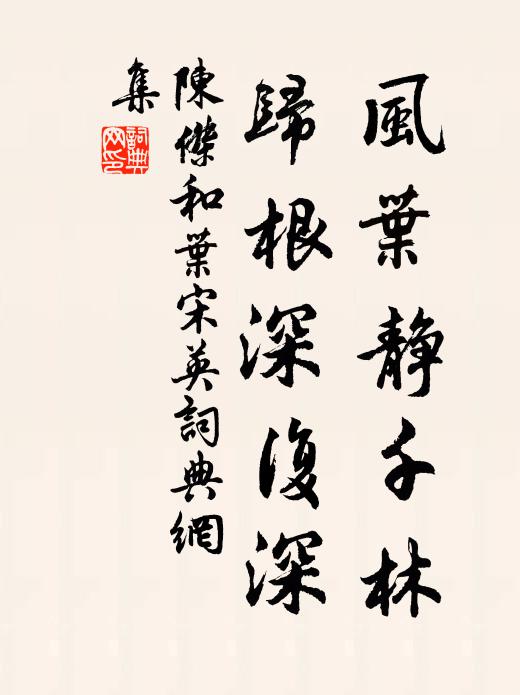 風葉靜千林
歸根深復深
陳傑和葉宋英詞典網
集
詞典网印